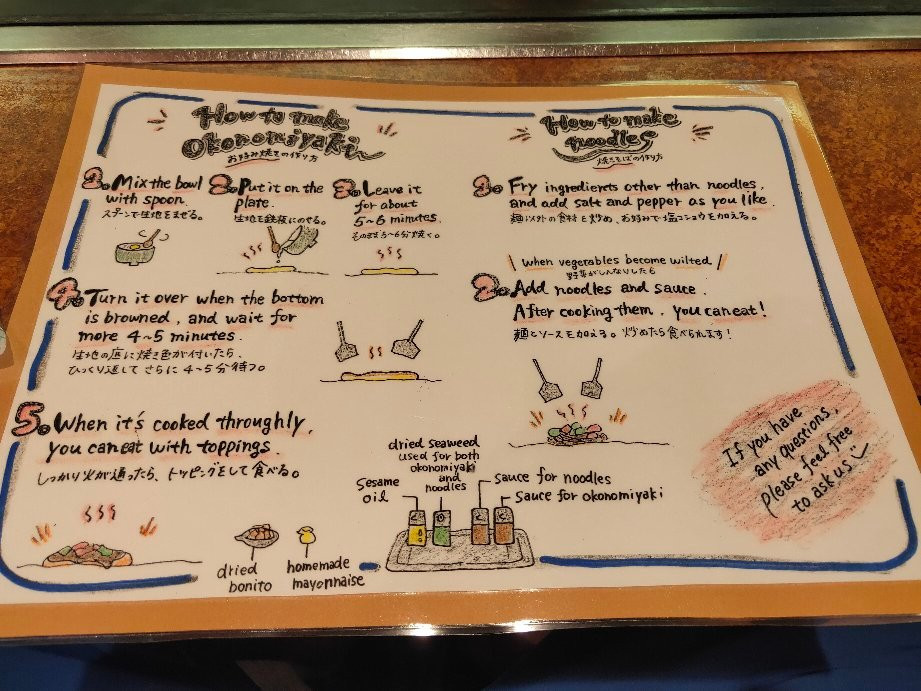 How to make
Okonomiyaki
お好み焼きの作り方
1. Mix the bowl
with spoon.
スプーンで生地をまぜる。
2. Put it on the
plate.
生地を鉄板にのせる。
3. Leave it
for about
5~6 minutes.
そのまま5~6分焼く。
4. Turn it over when the bottom
is browned, and wait for
more 4~5 minutes.
生地の底に焼き色が付いたら、
ひっくり返してさらに4~5分待つ。
5. When it's cooked throughly,
you can eat with toppings.
しっかり火が通ったら、トッピングをして食べる。
dried
bonito
homemade
mayonnaise
Sesame
oil
dried seaweed
used for both
okonomiyaki
and
noodles
Sauce for noodles
Sauce for okonomiyaki
How to make
noodles
焼きそばの作り方
1. Fry ingredients other than noodles,
and add salt and pepper as you like.
麺以外の食材を炒め、お好みで塩コショウを加える。
\ when vegetables become wilted /
野菜がしんなりしたら
2. Add noodles and sauce.
After cooking them, you can eat!
麺とソースを加える。炒めたら食べられます!
If you have
any questions,
please feel free
to ask us